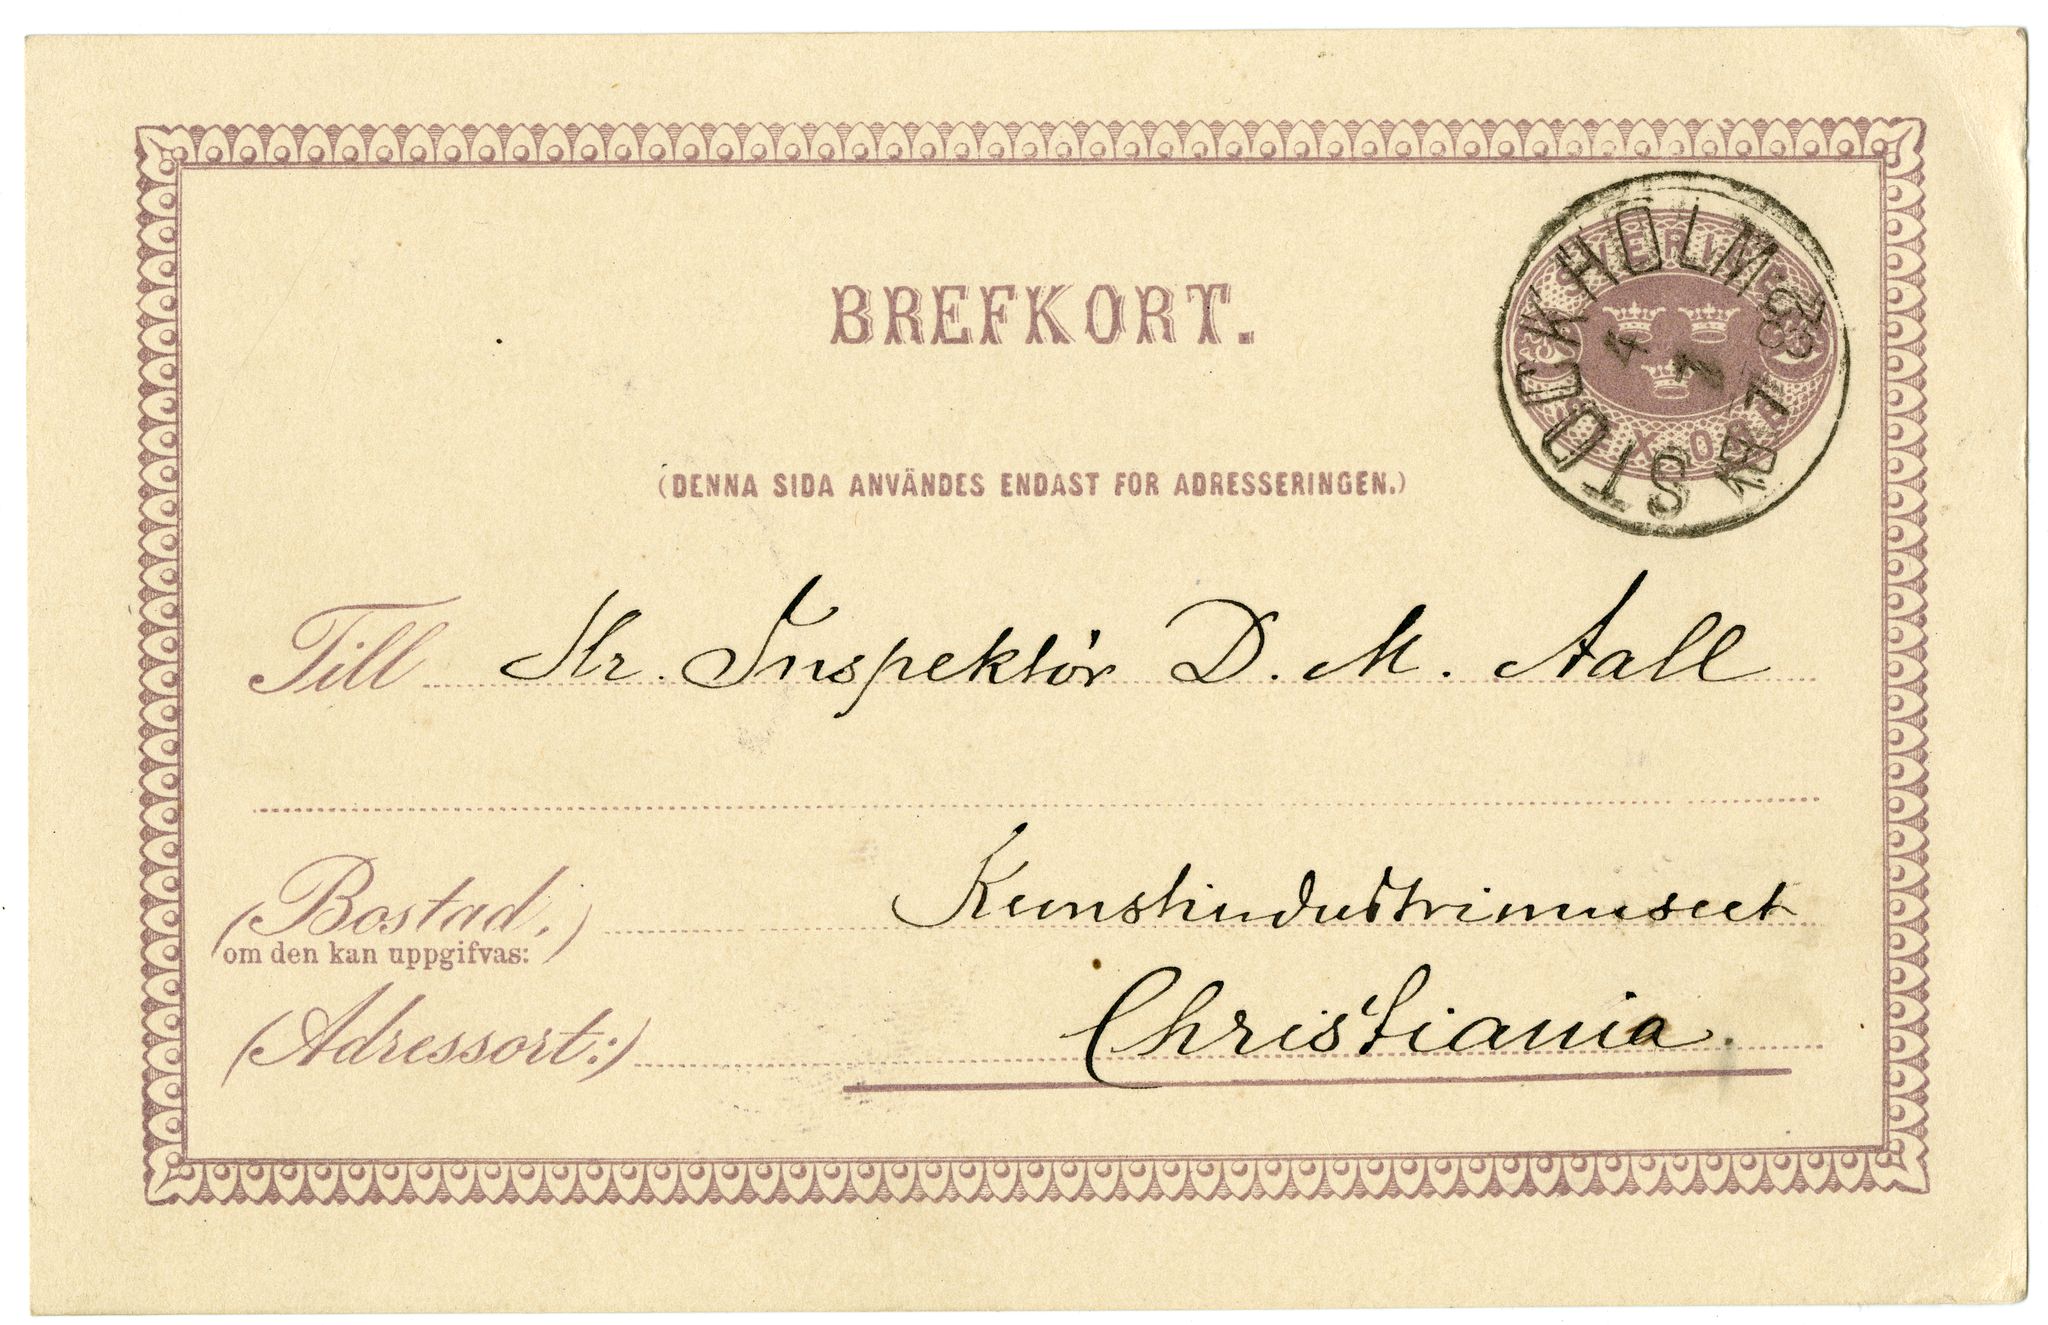 BREFKORT.
STOCKHOLM
4
1
88
SVERIGE
(DENNA SIDA ANVÄNDES ENDAST FÖR ADRESSERINGEN.)
Till Hr. Inspektör D. M. Aall
Kunstindustrimuseet
(Bostad,)
om den kan uppgifvas:
(Adressort:) Christiania.